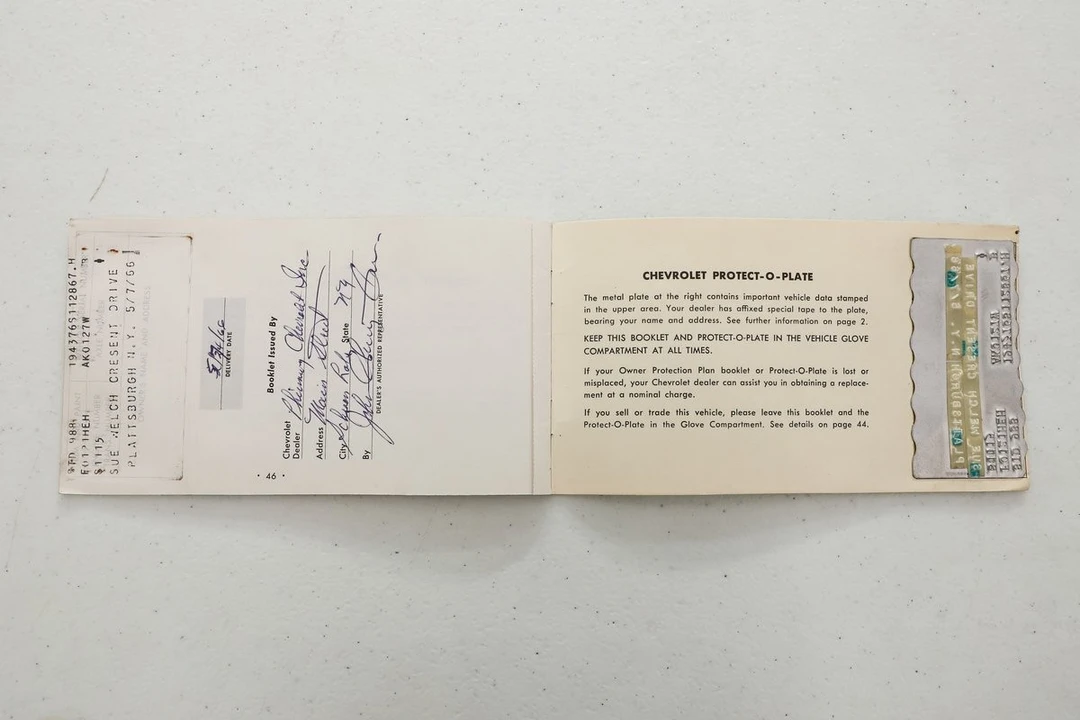 194376S112867.H
AK0127W
E0121HEH
SUE WELCH CRESENT DRIVE
PLATTSBURGH N.Y. 5/7/66
DELIVERY DATE
Booklet Issued By
Chevrolet
Dealer Chevrolet Inc
Address Main Street
City State NY
By John
DEALER'S AUTHORIZED REPRESENTATIVE
• 46 •
CHEVROLET PROTECT-O-PLATE
The metal plate at the right contains important vehicle data stamped
in the upper area. Your dealer has affixed special tape to the plate,
bearing your name and address. See further information on page 2.
KEEP THIS BOOKLET AND PROTECT-O-PLATE IN THE VEHICLE GLOVE
COMPARTMENT AT ALL TIMES.
If your Owner Protection Plan booklet or Protect-O-Plate is lost or
misplaced, your Chevrolet dealer can assist you in obtaining a replace-
ment at a nominal charge.
If you sell or trade this vehicle, please leave this booklet and the
Protect-O-Plate in the Glove Compartment. See details on page 44.